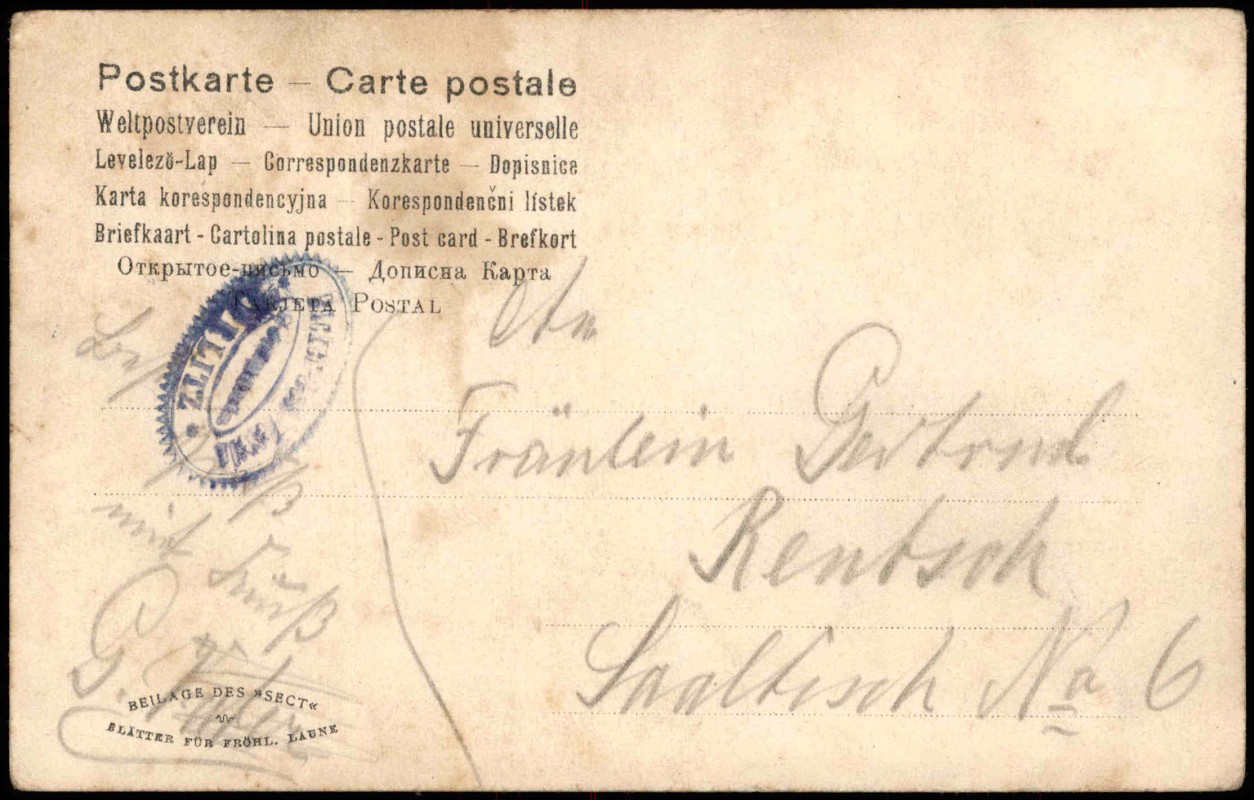 Postkarte — Carte postale
Weltpostverein — Union postale universelle
Levelező-Lap — Correspondenzkarte — Dopisnice
Karta korespondencyjna — Korespondenčni lístek
Briefkaart - Cartolina postale - Post card - Brefkort
Открытое-письмо — Дописна Карта
Tarjeta Postal
An
Fräulein Gertrud
Rentsch
Saaltisch No 6
mit Gruß
G.
BEILAGE DES »SECT«
BLÄTTER FÜR FRÖHL. LAUNE